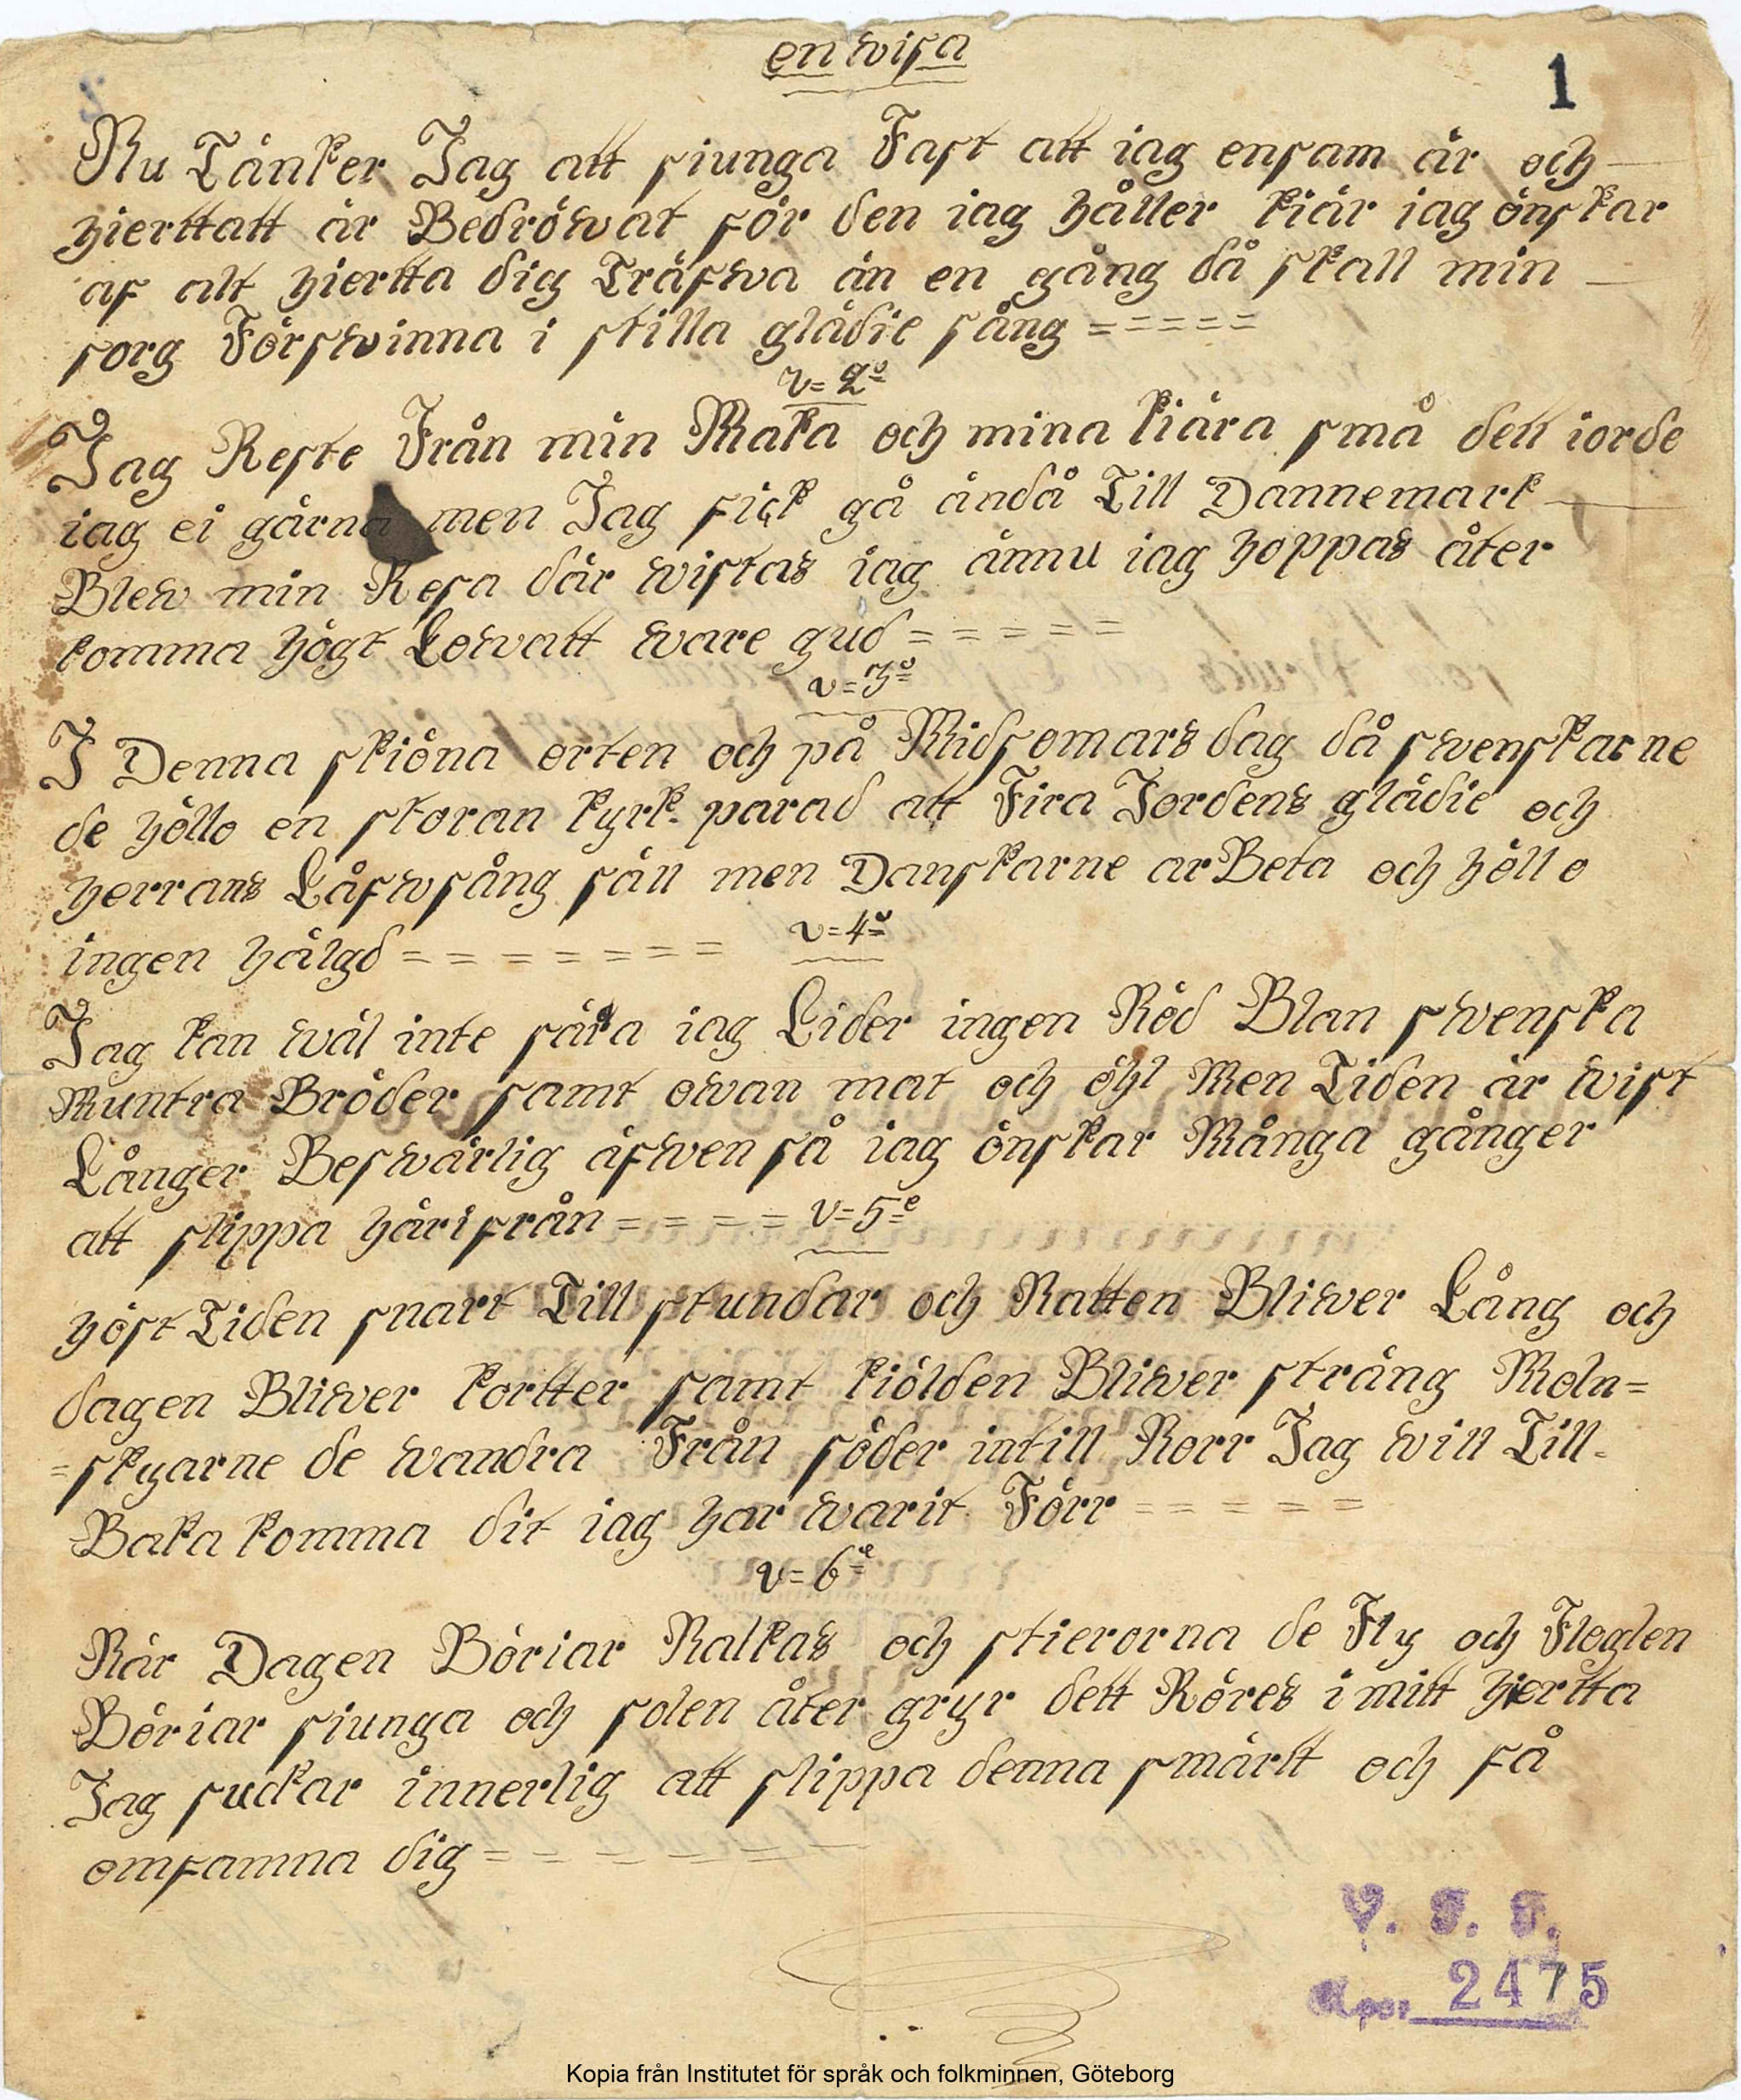 en wisa
1
Nu Tänker Jag att siunga Fast att iag ensam är och
hierttatt är Bedröwat för den iag håller kiär iag önskar
af alt hiertta dig Träfwa än en gång då skall min
sorg Förswinna i stilla glädie sång =====
v=2º
Jag Reste Från min Maka och mina kiära små dett iorde
iag ei gärna men Jag fick gå ändå Till Dannemark
Blew min Resa där wistas iag ännu iag hoppas åter
komma högt Lowatt ware gud =====
v=3º
I Denna skiöna orten och på Midsomars dag då swenskarne
de höllo en storan kyrk-parad att Fira Jordens glädie och
herrans Låfwsång säll men Danskarne arBeta och höllo
ingen hälgd ======= v=4º
Jag kan wäl inte säia iag Lider ingen Nöd Blan swenska
Muntra Bröder samt owan mat och öhl Men Tiden är wist
Långer Beswärlig äfwen så iag önskar Många gånger
att slippa härifrån ==== v=5e
höst Tiden snart Till stundar och Natten Bliwer Lång och
dagen Bliwer kortter samt kiölden Bliwer sträng Moln=
=skyarne de wandra Från söder intill Norr Jag will Till-
Baka komma dit iag har warit Förr =====
v=6e
När Dagen Böriar Nalkas och stierorna de Fly och Floglen
Böriar siunga och solen åter gryr dett Röres i mitt hiertta
Jag suckar innerlig att slippa denna smärtt och få
omfamna dig ======
V. F. F.
2475
Kopia från Institutet för språk och folkminnen, Göteborg